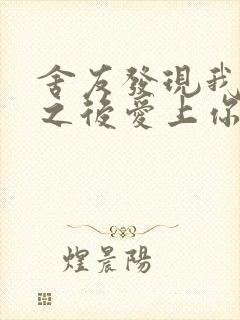 舍友發現我
之後愛上你
煌晨陽